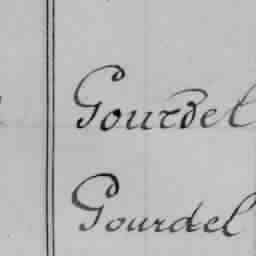 Gourdel
Gourdel